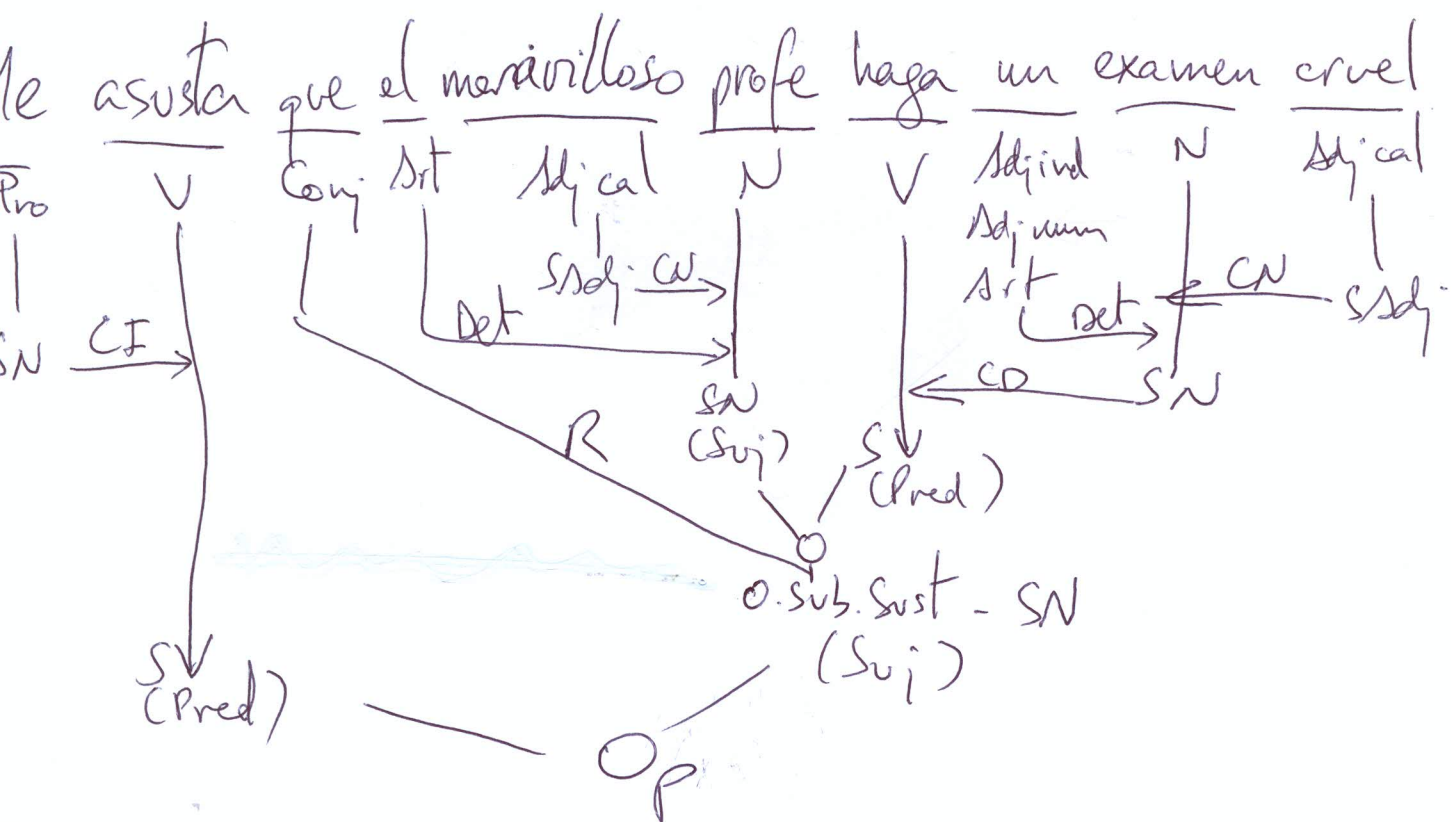 le asusta que el maravilloso profe haga un examen cruel
Pro V Conj Art Adj cal N V Adj ind N Adj cal
Adj num
SAdj CN Art CN SAdj
SN CI Det Det
SN CD SN
(Suj) SV
R (Pred)
O
O.Sub.Sust - SN
(Suj)
SV
(Pred)
Op